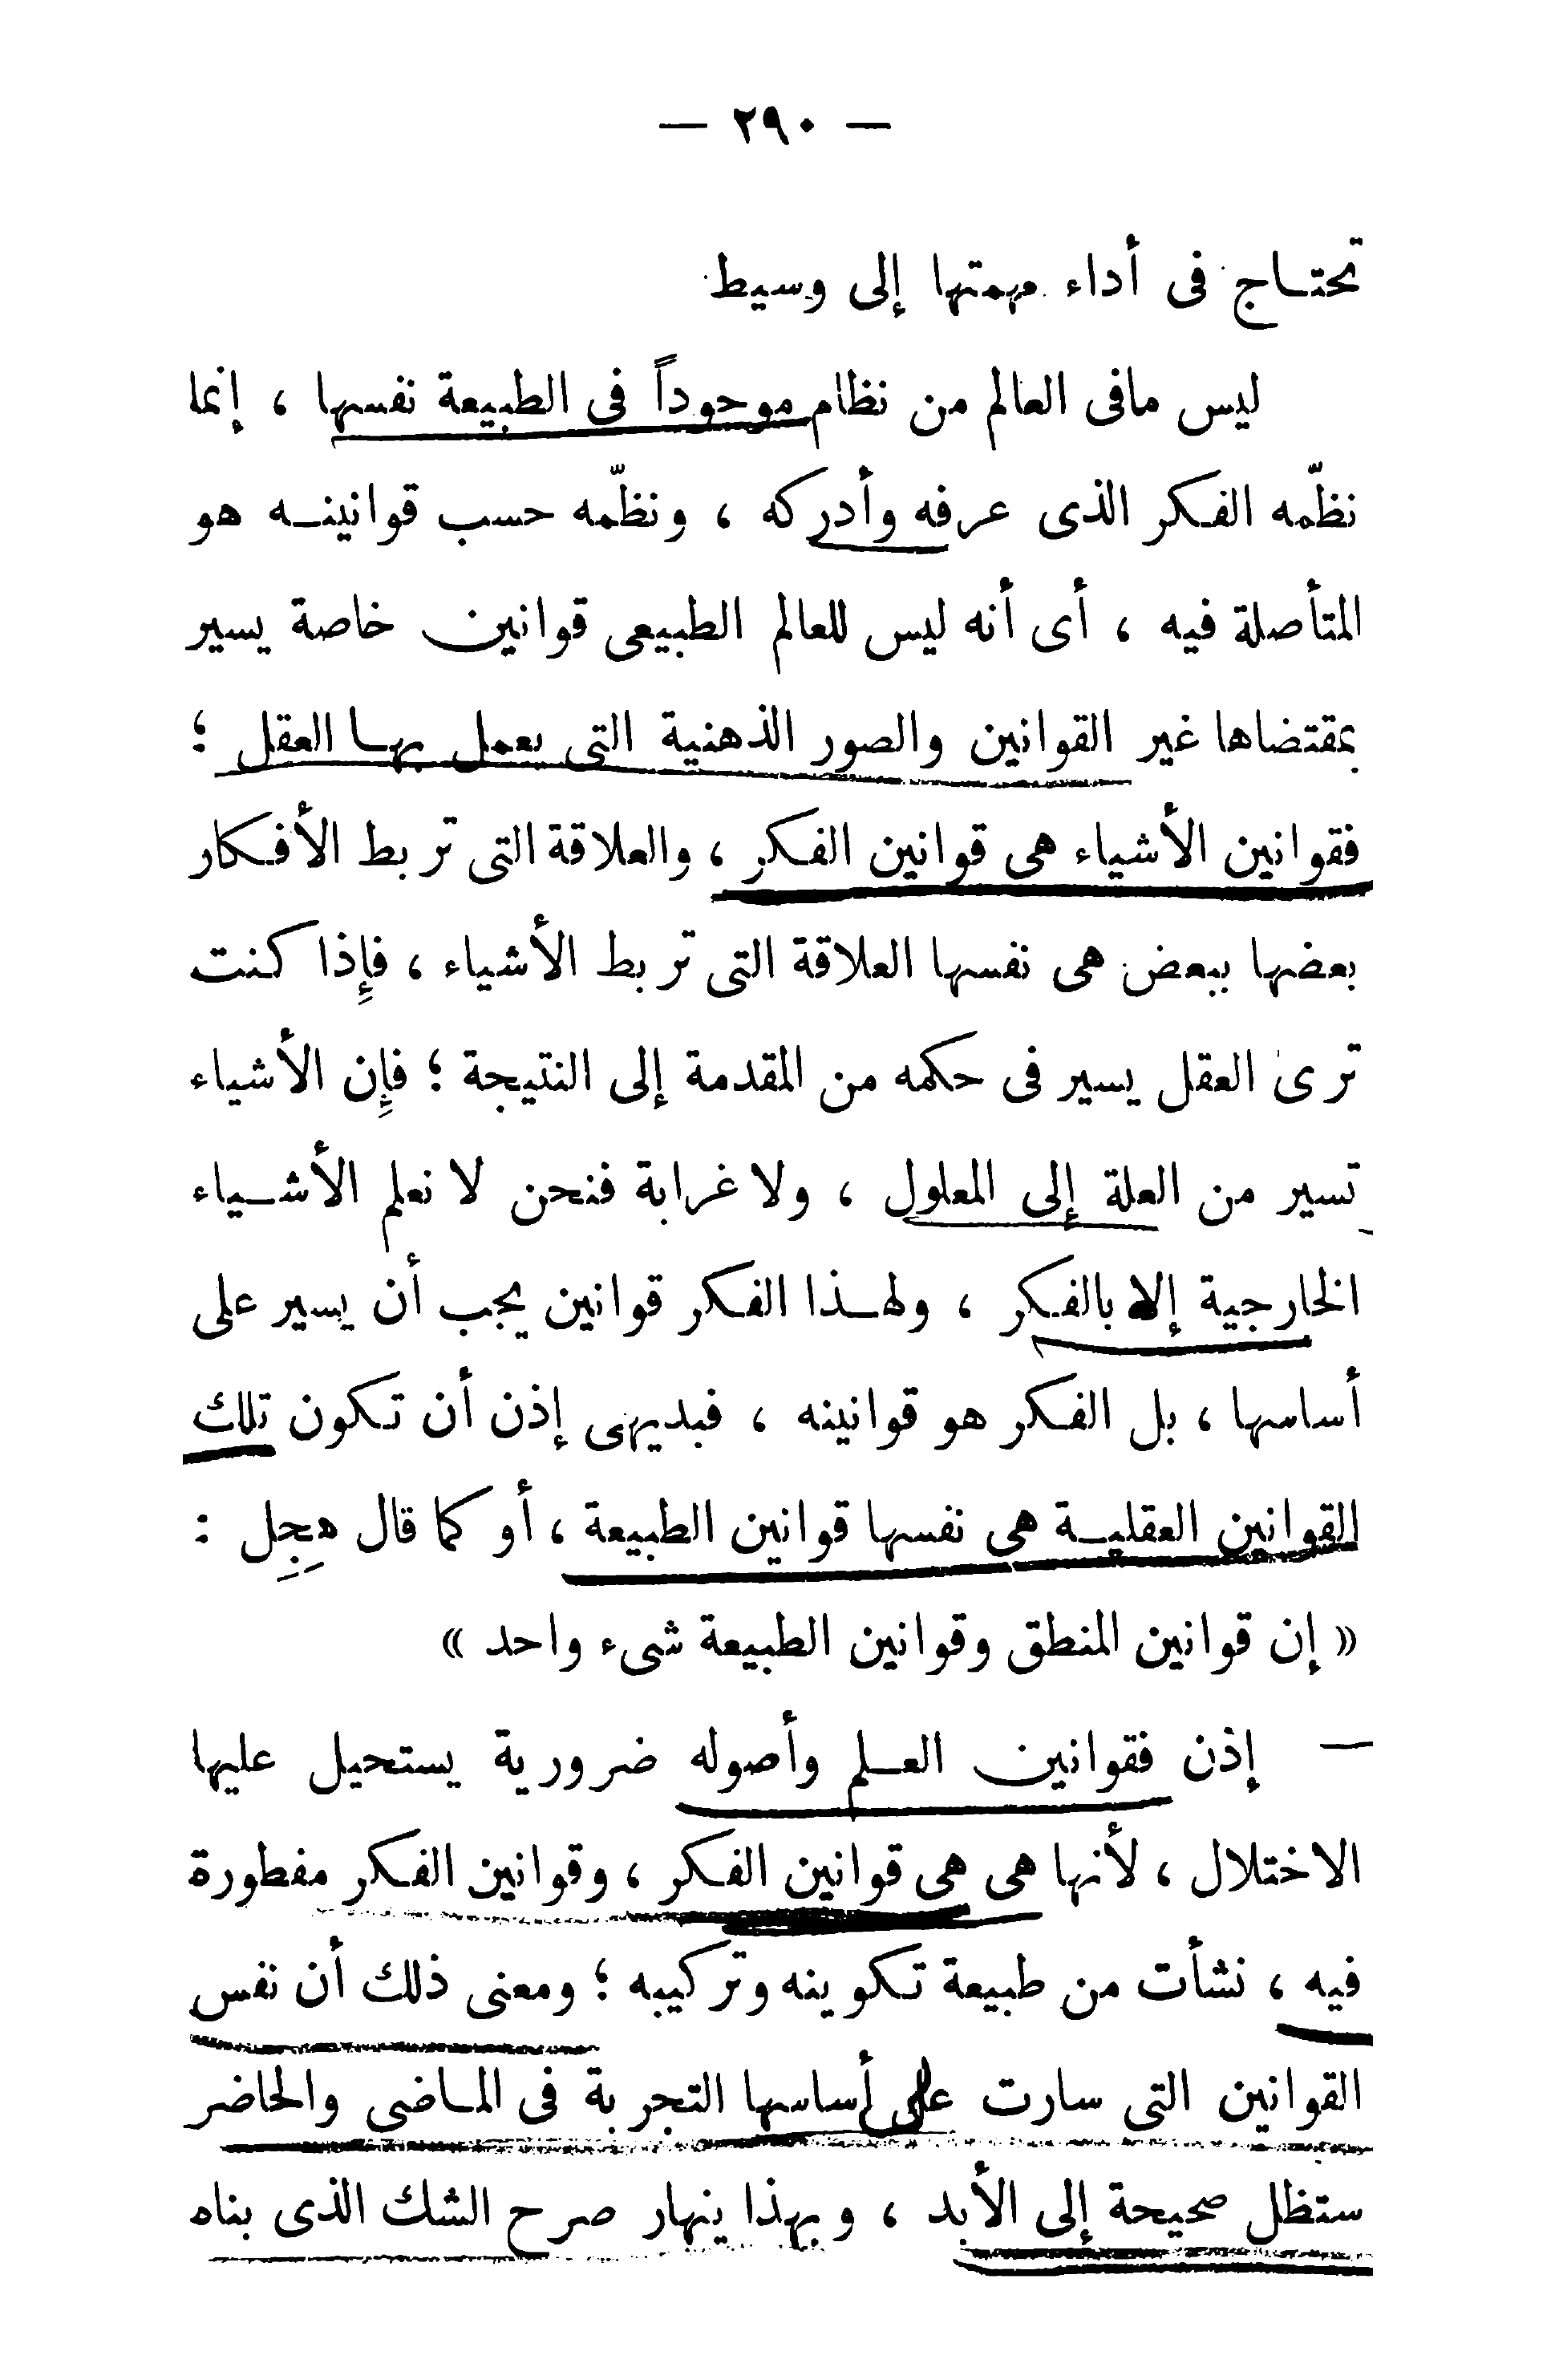 — ٢٩٠ —
تحتاج فى أداء مهمتها إلى وسيط
ليس مافى العالم من نظام موجوداً فى الطبيعة نفسها ، إنما
نظّمه الفكر الذى عرفه وأدركه ، ونظّمه حسب قوانينه هو
المتأصلة فيه ، أى أنه ليس للعالم الطبيعى قوانين خاصة يسير
بمقتضاها غير القوانين والصور الذهنية التى يعمل بها العقل ؛
فقوانين الأشياء هى قوانين الفكر ، والعلاقة التى تربط الأفكار
بعضها ببعض هى نفسها العلاقة التى تربط الأشياء ، فإِذا كنت
ترى العقل يسير فى حكمه من المقدمة إلى النتيجة ؛ فإِن الأشياء
تسير من العلة إلى المعلول ، ولا غرابة فنحن لا نعلم الأشياء
الخارجية إلا بالفكر ، ولهذا الفكر قوانين يجب أن يسير على
أساسها ، بل الفكر هو قوانينه ، فبديهى إذن أن تكون تلك
القوانين العقلية هى نفسها قوانين الطبيعة ، أو كما قال هِجِل :
« إن قوانين المنطق وقوانين الطبيعة شىء واحد »
إذن فقوانين العلم وأصوله ضرورية يستحيل عليها
الاختلال ، لأنها هى هى قوانين الفكر ، وقوانين الفكر مفطورة
فيه ، نشأت من طبيعة تكوينه وتركيبه ؛ ومعنى ذلك أن نفس
القوانين التى سارت على أساسها التجربة فى الماضى والحاضر
ستظل صحيحة إلى الأبد ، وبهذا ينهار صرح الشك الذى بناه